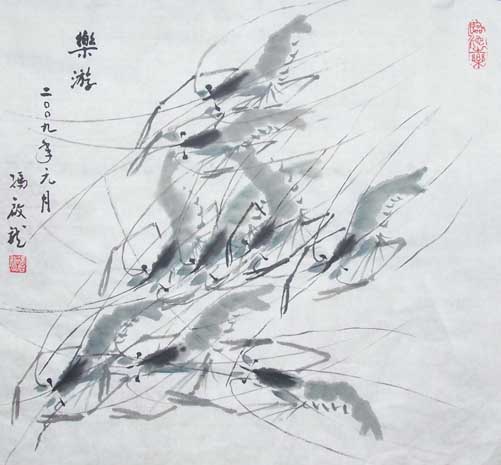 樂游
二〇〇九年元月
馮啟龍